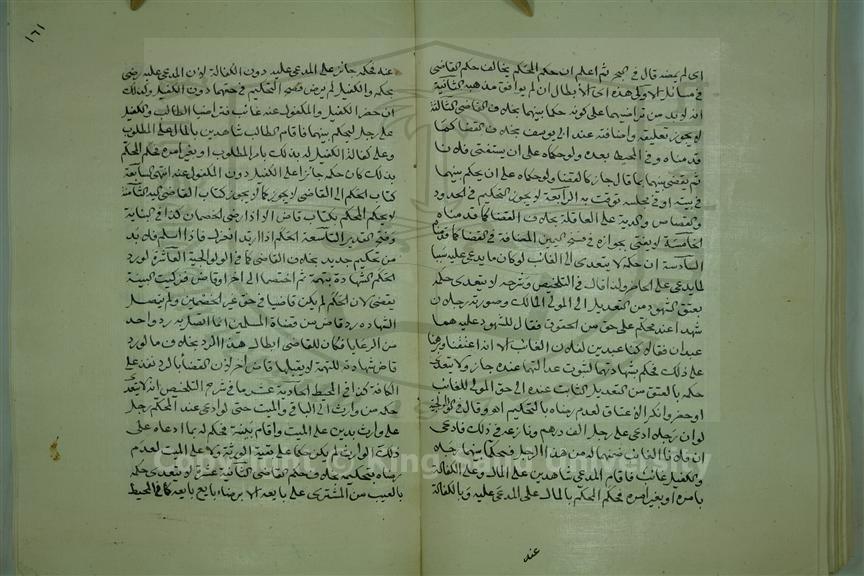 اى لم يمضه قال فى البحر ثم اعلم ان حكم المحكم يخالف حكم القاضى
فى مسائل الاولى هذه اى الابطال ان لم يوافق مذهبه الثانية
انه لابد من تراضيهما على كونه حكما بينهما بخلاف القاضى الثالثة
لا يجوز تعليقه واضافته عند ابى يوسف بخلاف القضا كما
قدمناه وفى المحيط بعده ولو حكماه على ان يستفتى فلانا
ثم يقضى بينهما بما قال جاز كما لقضا ولو حكماه على ان يحكم بينهما
فى بيته او فى مجلسه توقت به الرابعة لا يجوز التحكيم فى الحدود
والقصاص والدية على العاقلة بخلاف القضا كما قدمناه
الخامسة لا يفتى بجوازه فى فسخ اليمين المضافة فى القضا كما قدمناه
السادسة ان حكمه لا يتعدى الى الغائب لو كان ما يدعى عليه سببا
لما يدعى على الحاضر ولذا قال فى التلخيص وشرحه لا يتعدى حكمه
بعتق الشهود من التعديل الى المولى المالك وصورته رجلان
شهدا عند محكم على حق من الحقوق فقال المشهود عليه هما
عبدان فقالا كنا عبدين لفلان الغائب الا انه اعتقنا وبرهنا
على ذلك فحكم بشهادتهما لثبوت عدالتهما عنده جاز ولا يتعدى
حكمه بالعتق من التعديل الثابت عنده الى حق المولى الغائب
لو حضر وانكر الاعتاق لعدم رضاه بالتحكيم اه وقال فى الولوالجية
لو ان رجلا ادعى على رجل الف درهم ونازعه فى ذلك فادعى
ان فلانا الغائب ضمنها له من هذا الرجل فحكما بينهما رجلا
والكفيل غائب فاقام المدعى شاهدين على المال وعلى الكفالة
بامره او بغير امره فحكم المحكم بالمال على المدعى عليه وبالكفالة
عنه
١٦١
عنه فحكمه جائز على المدعى عليه دون الكفالة لان المدعى عليه رضى
بحكمه والكفيل لم يرض فصح التحكيم فى حقهما دون الكفيل وكذلك
ان حضر الكفيل والمكفول عنه غائب فتراضيا الطالب والكفيل
على رجل ليحكم بينهما فاقام الطالب شاهدين بالمال على المطلوب
وعلى كفالة الكفيل له بذلك بامر المطلوب او بغير امره فحكم المحكم
بذلك كان حكمه جائزا على الكفيل دون المكفول عنه انتهى السابعة
كتاب الحكم الى القاضى لا يجوز كما لا يجوز كتاب القاضى اليه الثامنة
لا يحكم المحكم بكتاب قاض الا اذا رضى الخصمان كذا فى البناية
وفتح القدير التاسعة الحكم اذا ارتد انعزل فاذا اسلم فلا بد
من تحكيم جديد بخلاف القاضى كما فى الولوالجية العاشرة لو رد
الحكم الشهادة بتهمة ثم اختصما الى اخر او قاض فزكيت البينة
يقضى لان الحكم لم يكن قاضيا فى حق غير الخصمين ولم يتصل
الشهادة رد قاض من قضاة المسلمين انما اتصل به رد واحد
من الرعايا فكان للقاضى ابطال هذا الرد بخلاف ما لو رد
قاض شهادته للتهمة لا يقبلها قاض اخر لان القضا بالرد نفذ على
الكافة كذا فى المحيط الحادية عشر ما فى شرح التلخيص انه لا يتعدى
حكمه من وارث الى الباقى والميت حتى لو ادعى عند المحكم رجل
على وارث بدين على الميت واقام بينة فحكم له بما ادعاه على
ذلك الوارث لم يكن حكما على بقية الورثة ولا على الميت لعدم
رضاه بتحكيمه بخلاف حكم القاضى الثانية عشرة لا يتعدى حكمه
بالعيب من المشترى على بايعه الا برضاء بايع بايعه كما فى المحيط
Copyright © King Saud University